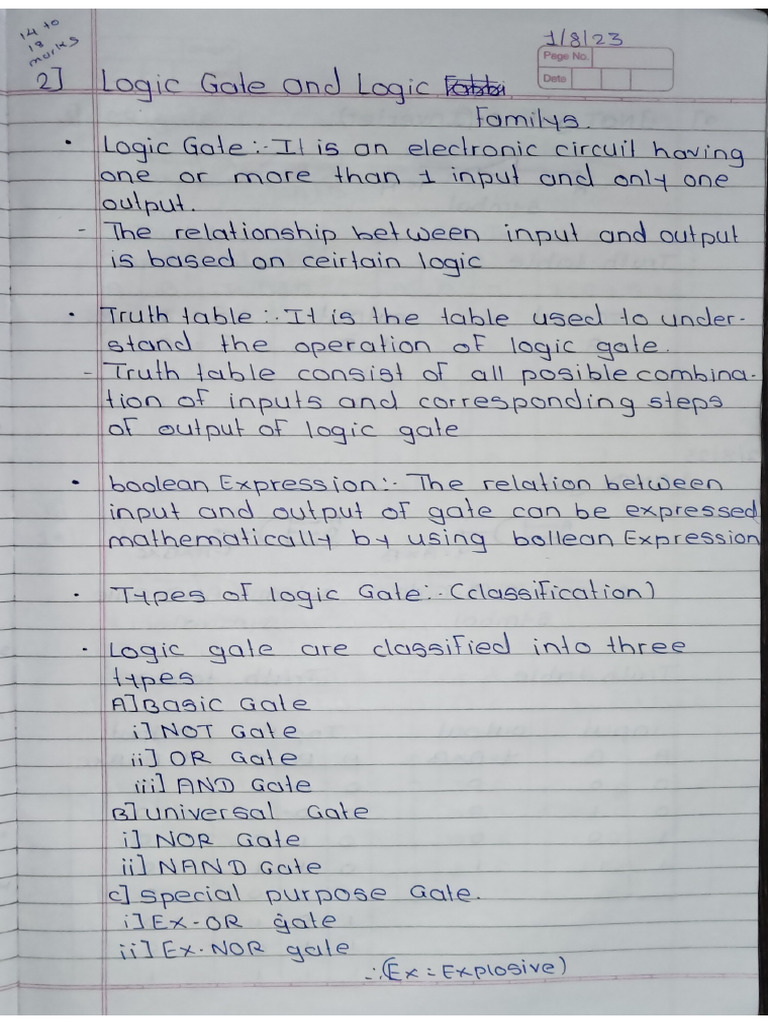 14 to
18
marks
1/8/23
Page No.
Date
2] Logic Gate and Logic
Familys.
• Logic Gate :- It is an electronic circuil having
one or more than 1 input and only one
output.
- The relationship between input and output
is based on ceirtain logic
• Truth table :- It is the table used to under-
stand the operation of logic gate.
- Truth table consist of all posible combina-
tion of inputs and corresponding steps
of output of logic gate
• boolean Expression:- The relation between
input and output of gate can be expressed
mathematically by using bollean Expression
• Types of logic Gate:- (classification)
• Logic gate are classified into three
types
A] Basic Gate
i] NOT Gate
ii] OR Gate
iii] AND Gate
B] universal Gate
i] NOR Gate
ii] NAND Gate
c] special purpose Gate.
i] EX-OR gate
ii] Ex-NOR gate
∴ (Ex = Explosive)